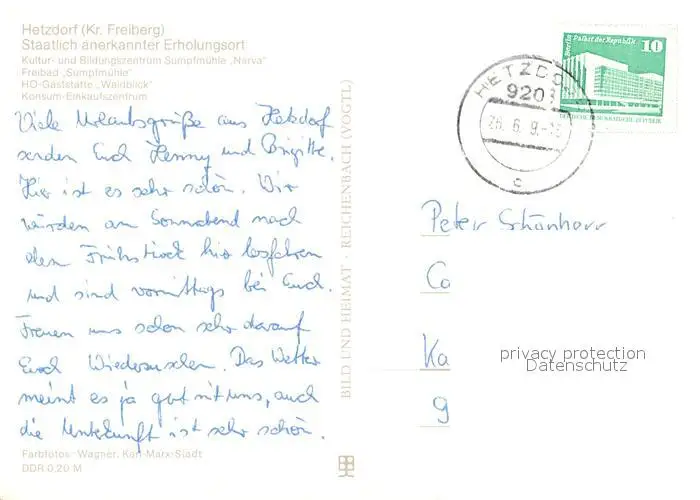 Hetzdorf (Kr. Freiberg)
Staatlich anerkannter Erholungsort
Kultur- und Bildungszentrum Sumpfmühle „Narva"
Freibad „Sumpfmühle"
HO-Gaststätte „Waldblick"
Konsum-Einkaufszentrum
Viele Urlaubsgrüße aus Hetzdorf
senden Euch Henny und Brigitte.
Hier ist es sehr schön. Wir
würden am Sonnabend nach
dem Frühstück hier losfahren
und sind vormittags bei Euch.
Freuen uns schon sehr darauf
Euch Wiederzusehen. Das Wetter
meint es ja gut mit uns, auch
die Unterkunft ist sehr schön.
Farbfotos: Wagner, Karl-Marx-Stadt
DDR 0,20 M
BILD UND HEIMAT · REICHENBACH (VOGTL)
HETZDORF
920
26. 6. 9.
c
Berlin Palast der Republik
10
DEUTSCHE DEMOKRATISCHE REPUBLIK
Peter Schönherr
Ca
Ka
9
privacy protection
Datenschutz